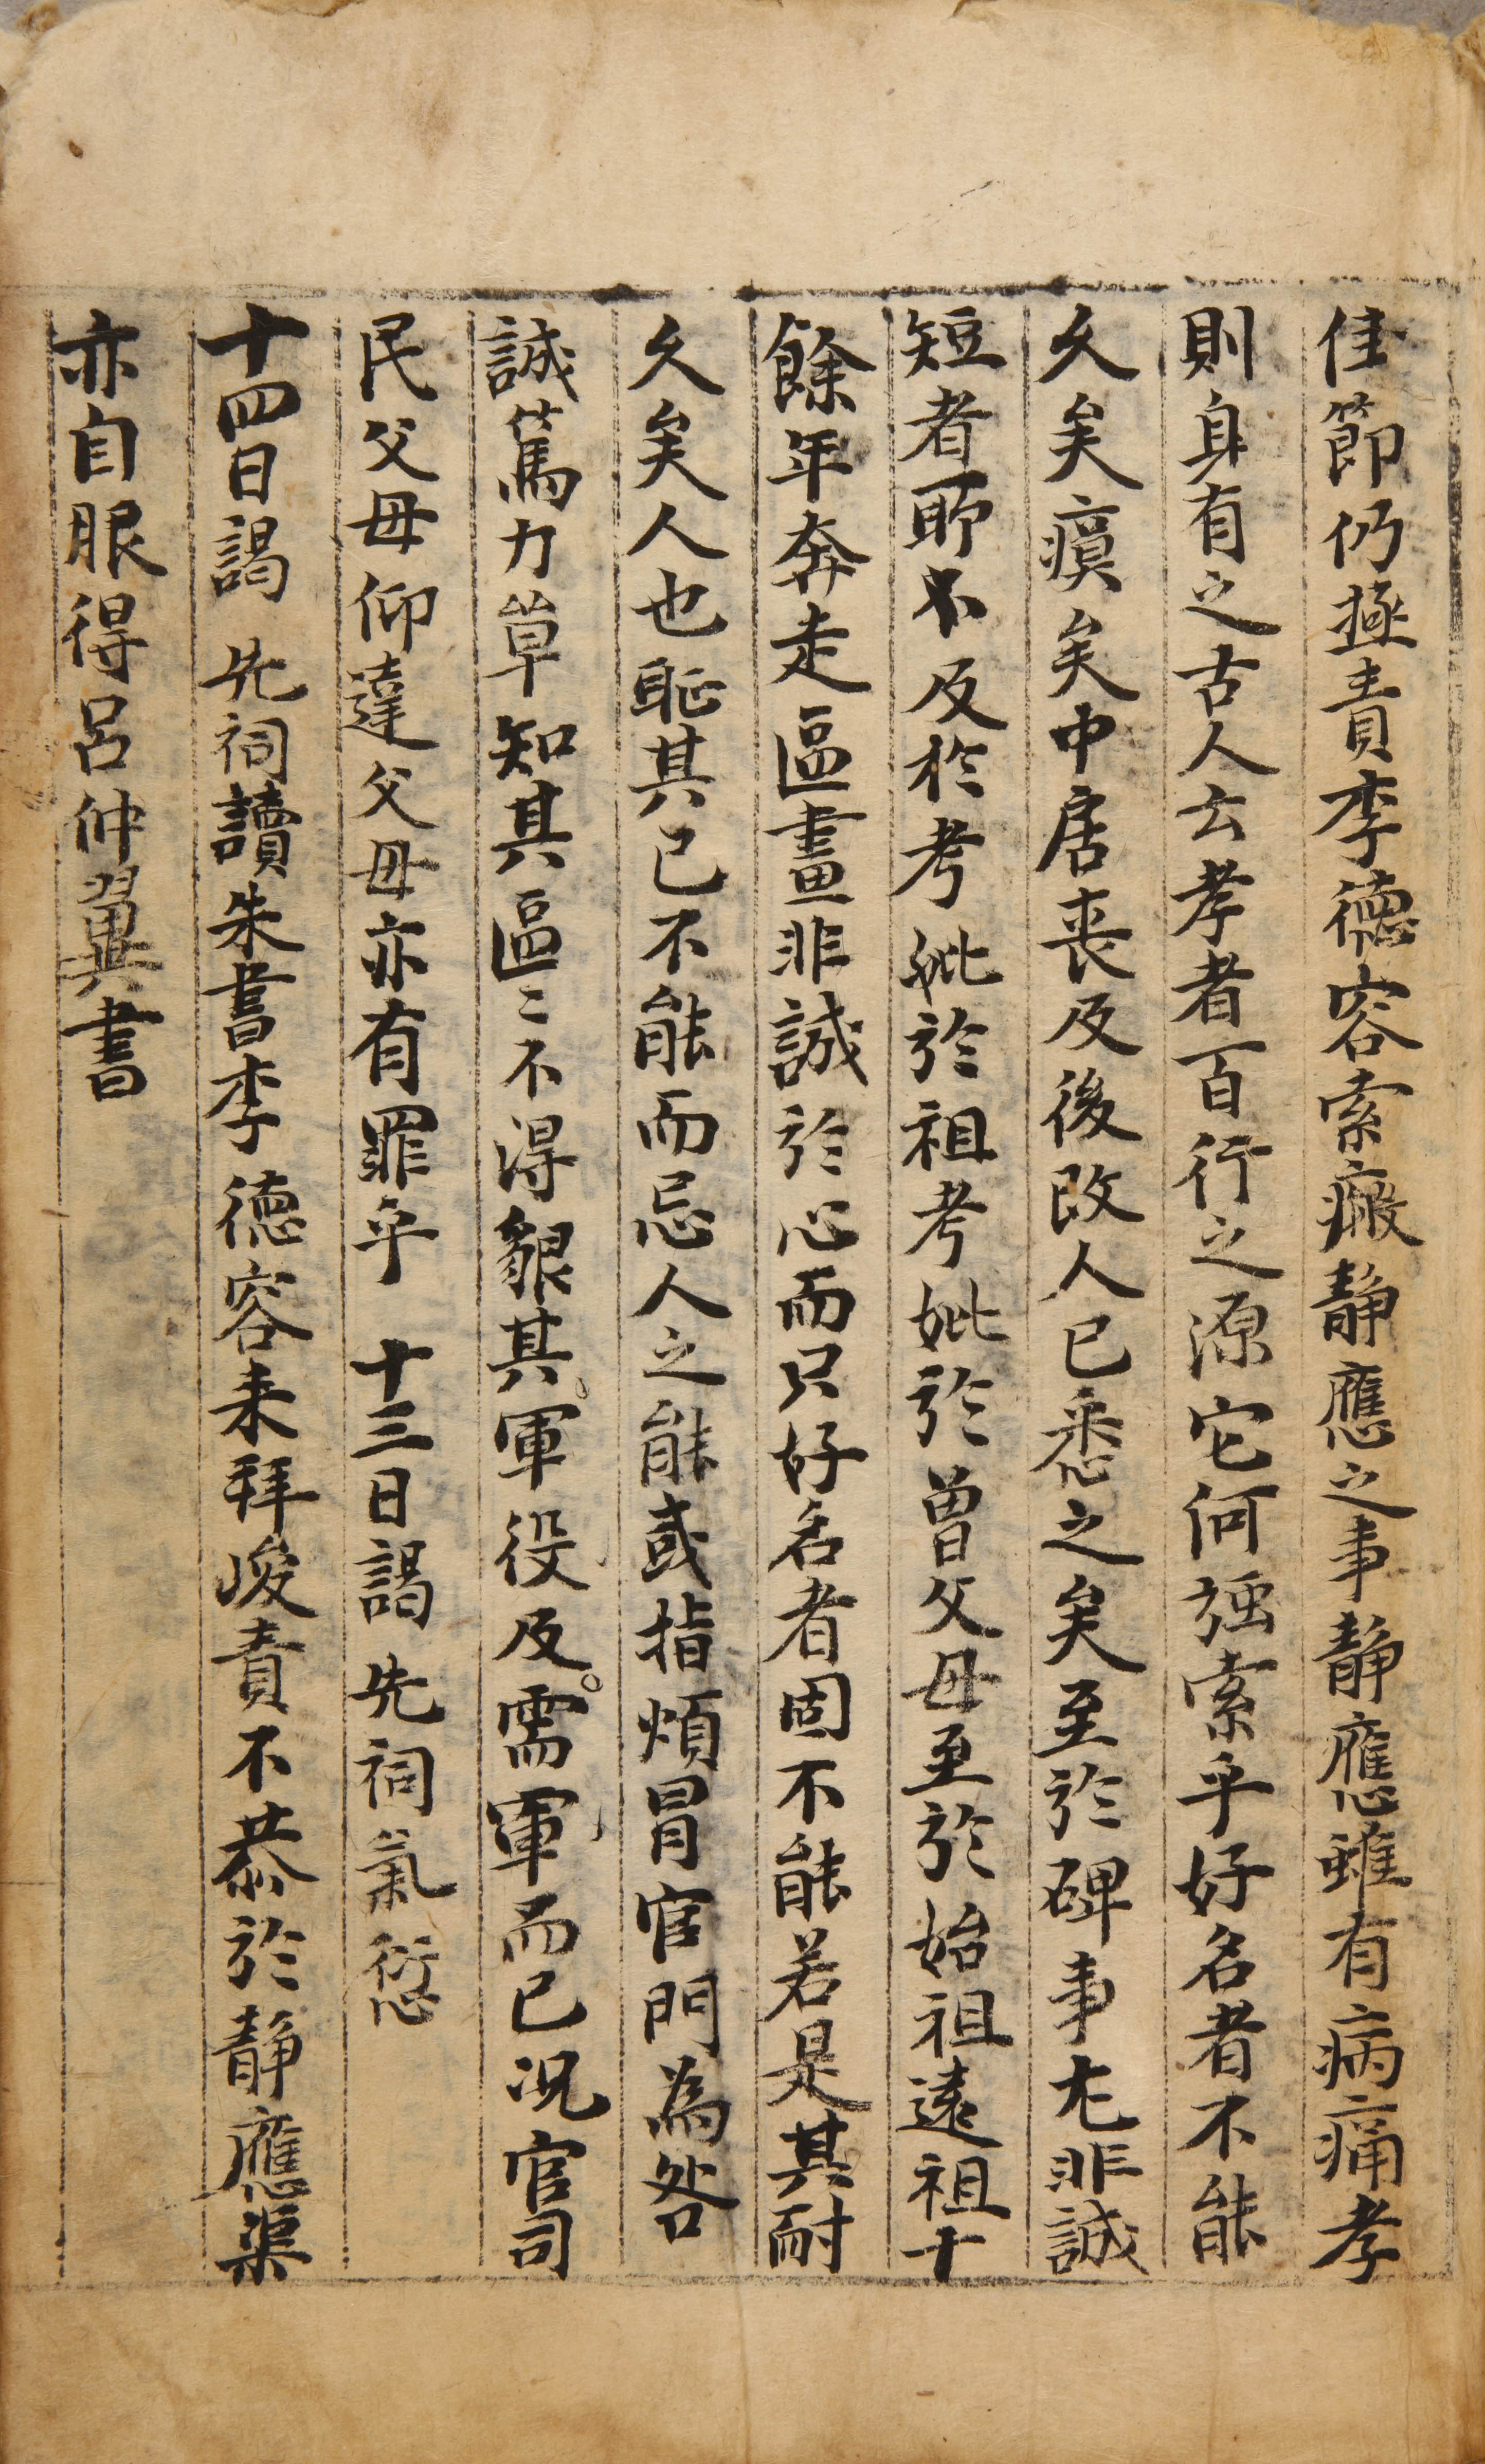 佳節仍極責李德容索瘢静應之事静應雖有病痛孝
則身有之古人云孝者百行之源它何強索乎好名者不能
久矣瘼矣中居喪及後改人已悉之矣至於碑事尤非誠
短者即不反於考妣於祖考妣於曾父母至於始祖遠祖十
餘年奔走區畫非誠於心而只好名者固不能若是其耐
久矣人也恥其已不能而忌人之能或指煩冒官門為咎
誠篤力草知其區〻不得貇其軍役及需軍而已况官司
民父母仰達父母亦有罪乎 十三日謁 先祠氣愆
十四日謁 先祠讀朱書李德容来拜峻責不恭於静應渠
亦自服得呂仲翼書